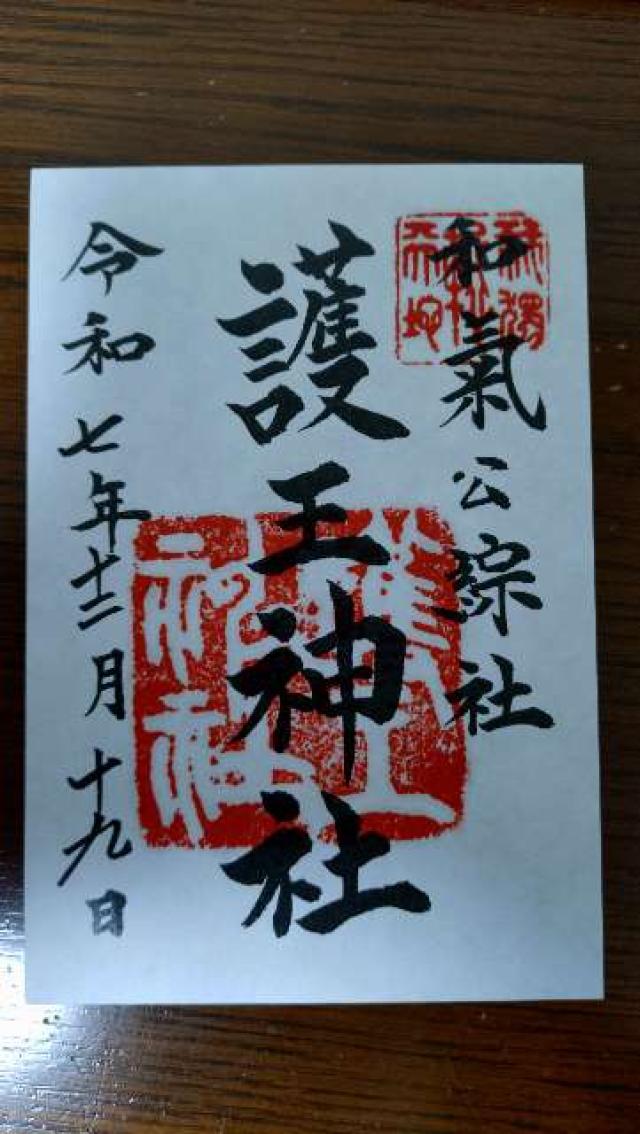 和氣公綜社
護王神社
令和七年十二月十九日